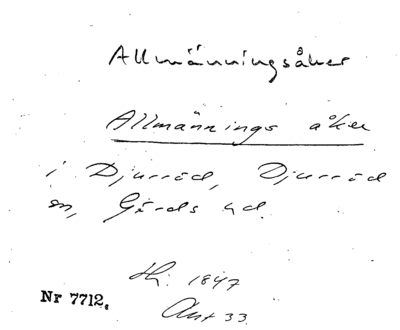 Allmänningsåker
Allmännings åker
i Djurröd, Djurröd
sn, Gärds hd.
Hj. 1847
Nr 7712.
Akt 33